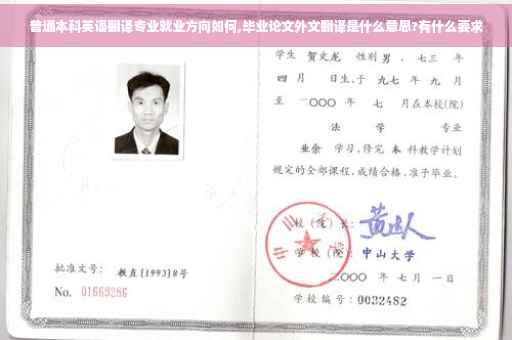 普通本科英语翻译专业就业方向如何,毕业论文外文翻译是什么意思?有什么要求
学生 贺文龙 性别 男 、七三 年
四 月 日生,于 九七 年 九 月
至 二〇〇〇 年 七 月在本校(院)
法 学 专业
业余 学习,修完 本 科教学计划
规定的全部课程,成绩合格,准予毕业。
校 (院) 长:
学 校 (院): 中山大学
二〇〇〇 年 七 月 一 日
学校编号: 0032482
批准文号: 教直(1993)8号
No. 01669286